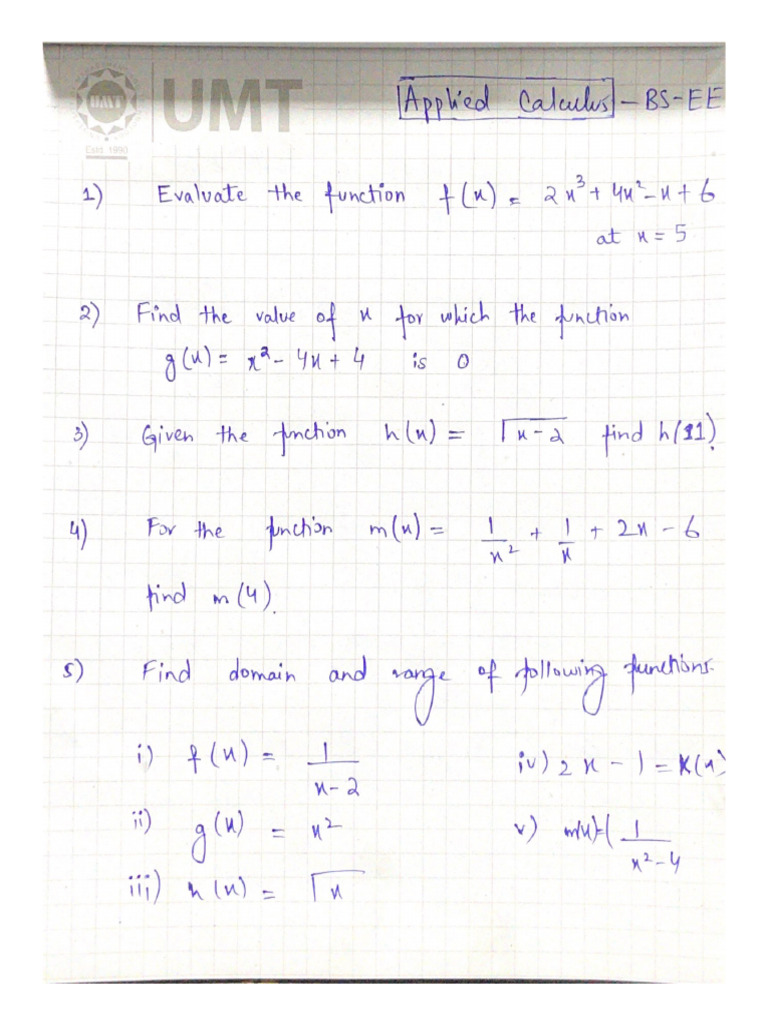 UMT
UMT
Estd. 1990
Applied Calculus - BS-EE
1) Evaluate the function f(x) = 2x³ + 4x² - x + 6
at x = 5
2) Find the value of x for which the function
g(x) = x² - 4x + 4 is 0
3) Given the function h(x) = √x-2 find h(11).
4) For the function m(x) = 1/x² + 1/x + 2x - 6
find m(4).
5) Find domain and range of following functions.
i) f(x) = 1/x-2
iv) 2x - 1 = K(x)
ii) g(x) = x²
v) m(x)=( 1/x²-4
iii) h(x) = √x